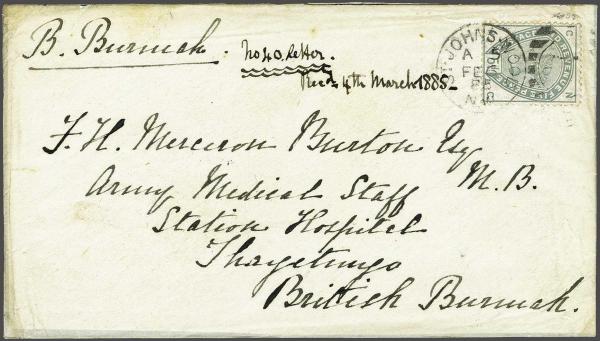 B. Burmah.
No 40. letter.
Recd 4th March 1885
ST. JOHN'S WOOD
A
FE
85
N.W
F. H. Merceron Burton Esq
M. B.
Army Medical Staff
Station Hospital
Thayetmyo
British Burmah.